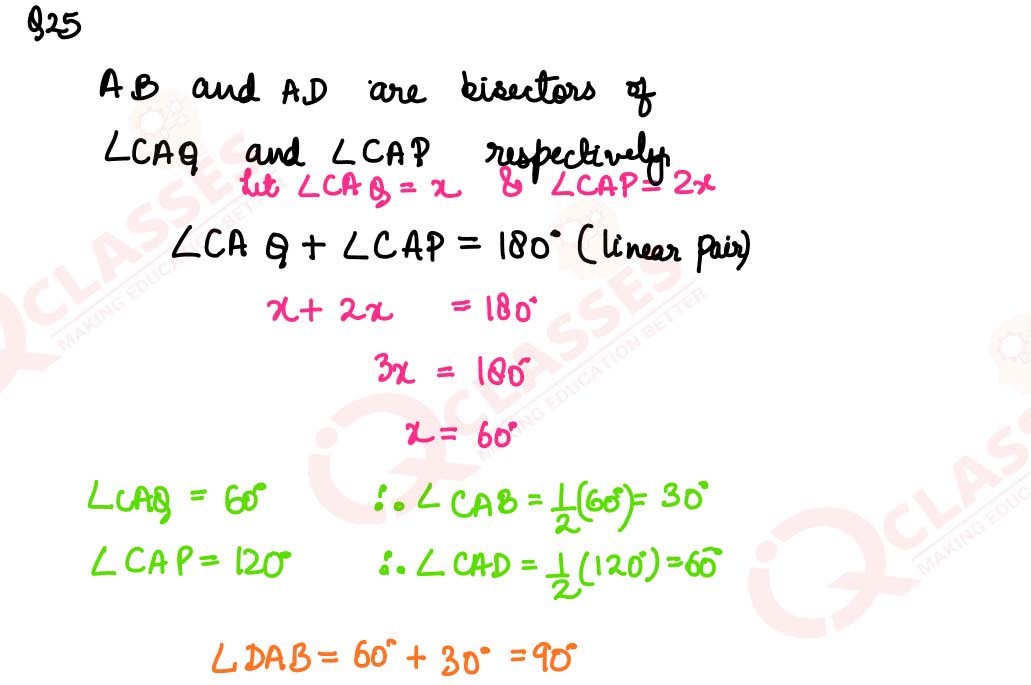 Q25
AB and AD are bisectors of
∠CAQ and ∠CAP respectively
let ∠CAQ = x & ∠CAP = 2x
∠CAQ + ∠CAP = 180° (linear pair)
x + 2x = 180°
3x = 180°
x = 60°
∠CAQ = 60° ∴ ∠CAB = 1/2 (60°) = 30°
∠CAP = 120° ∴ ∠CAD = 1/2 (120°) = 60°
∠DAB = 60° + 30° = 90°
IQ CLASSES
MAKING EDUCATION BETTER
IQ CLASSES
MAKING EDUCATION BETTER